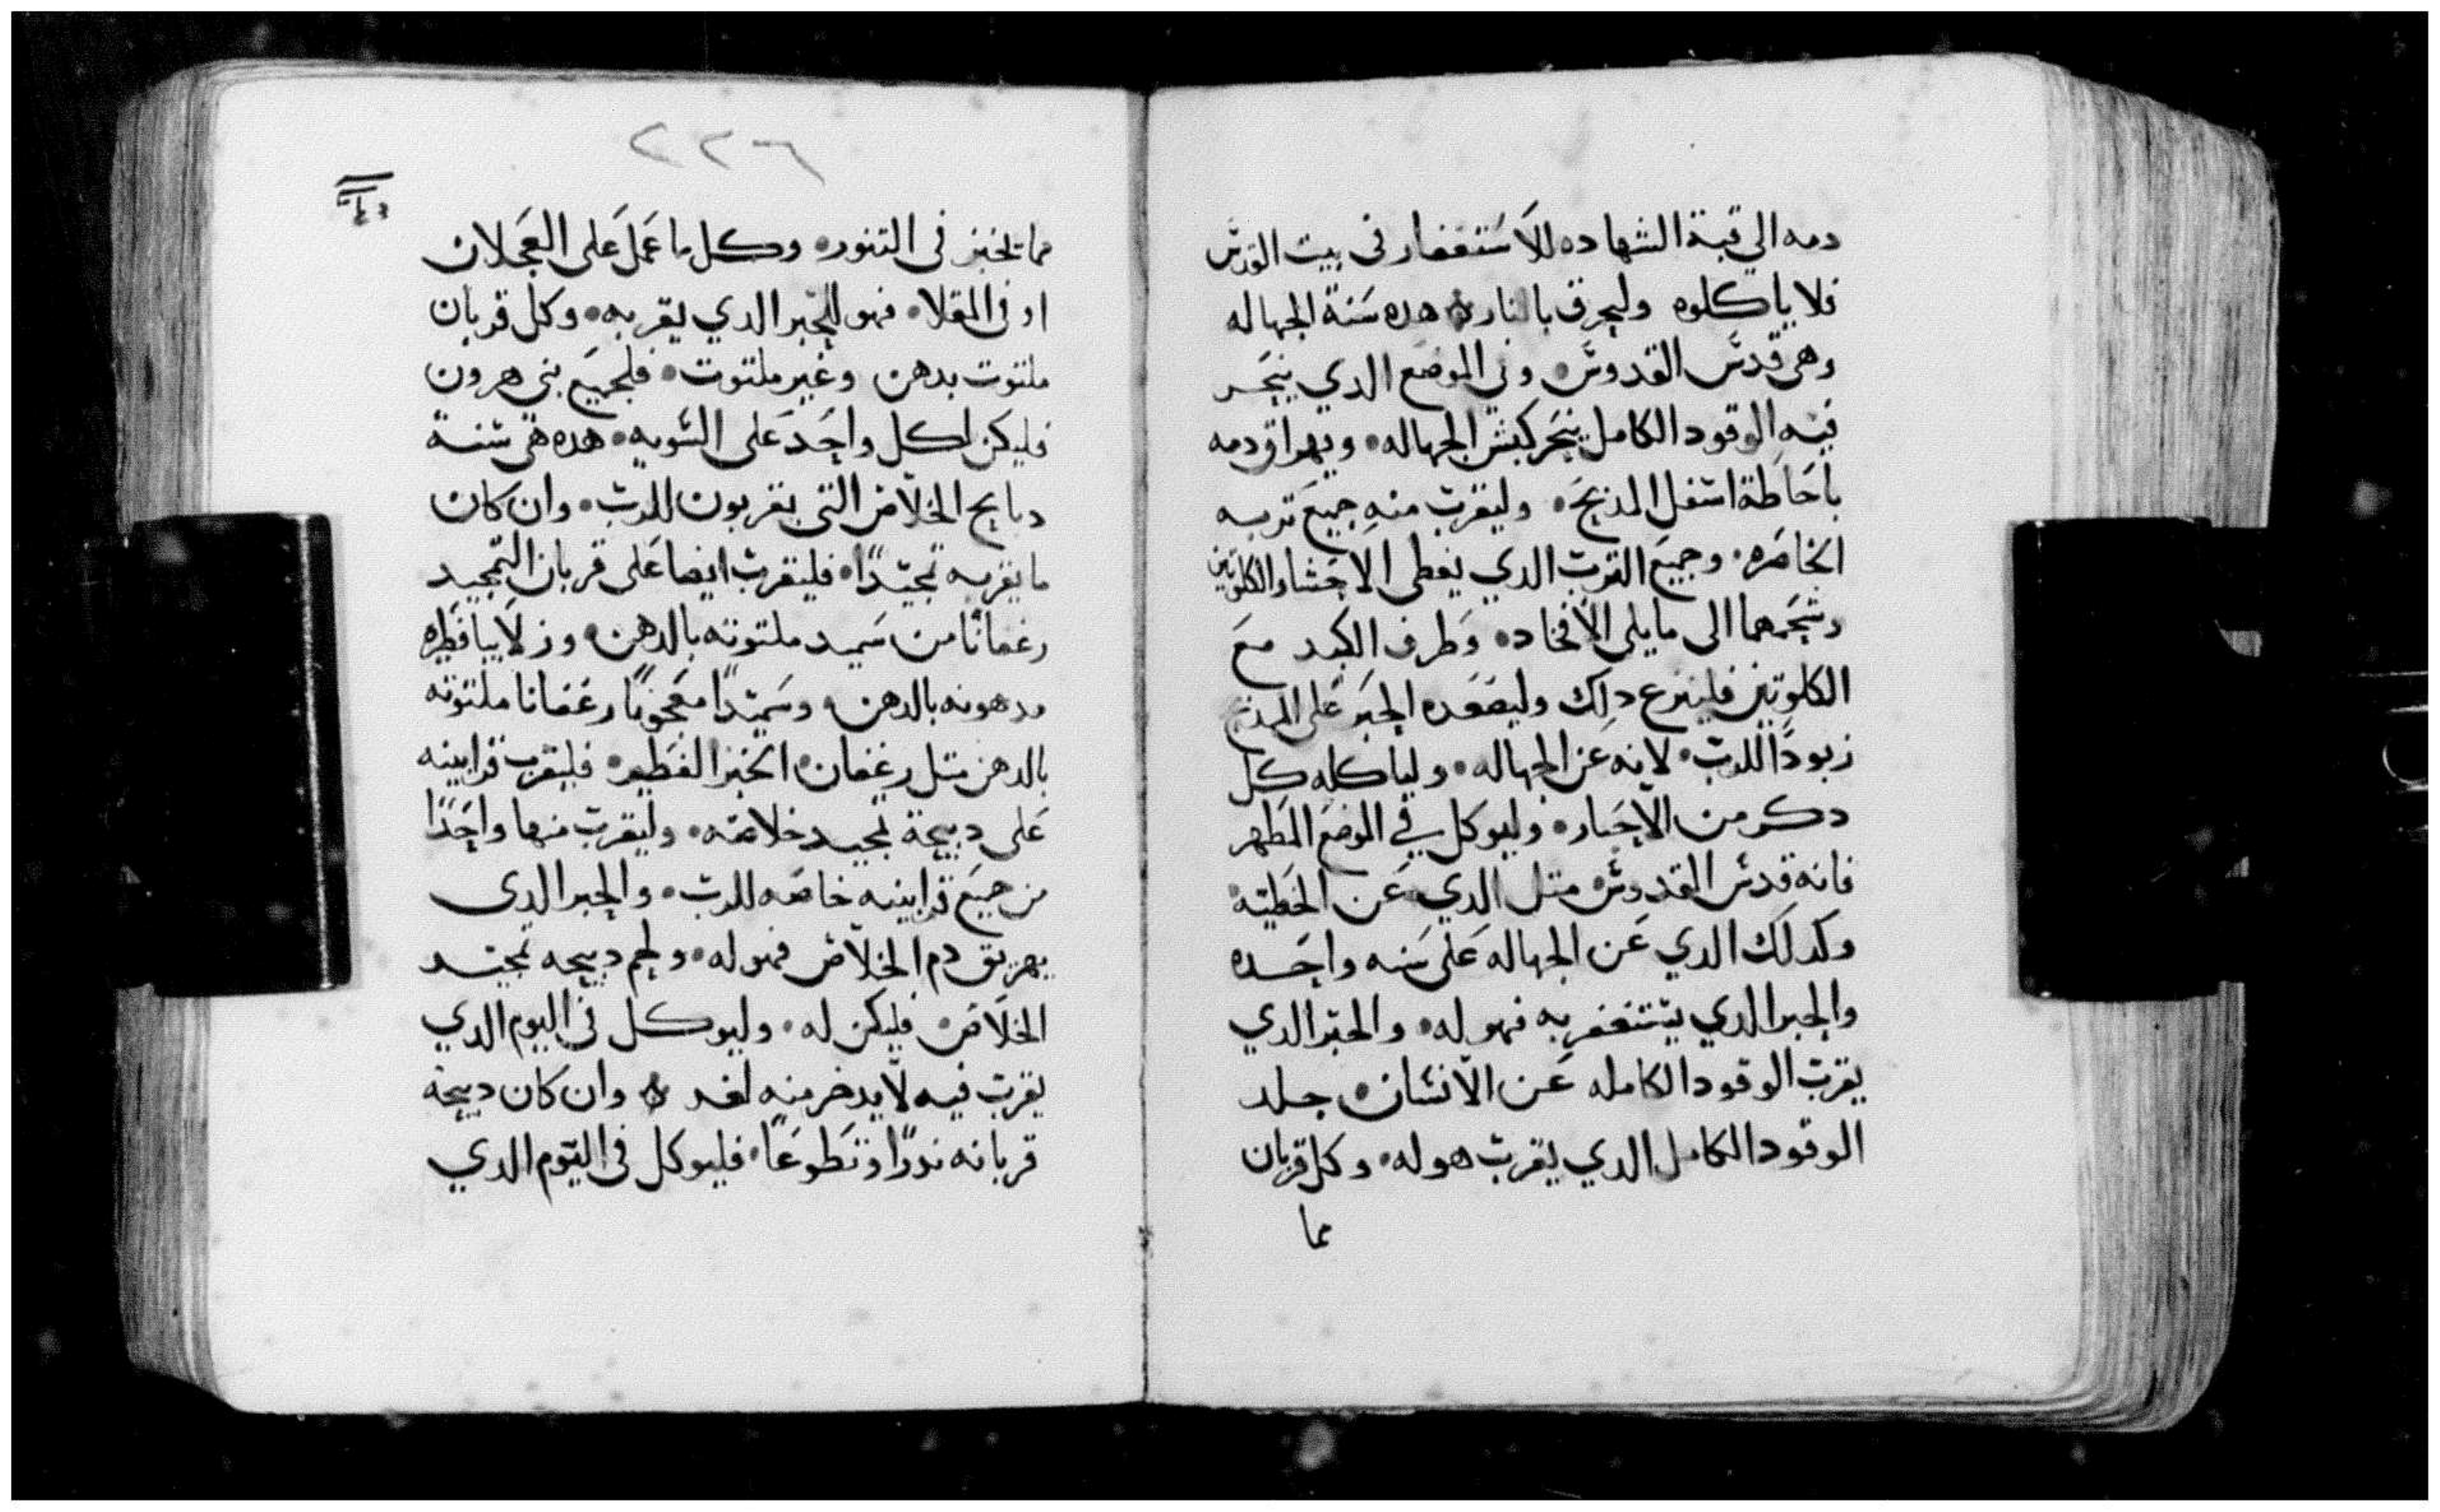 دمه الي قبة الشهاده للاستغفار فى بيت القدس
فلا ياكلوه وليحرق بالنار هده سنة الجهاله
وهى قدس القدوس وفي الموضع الدي ينحر
فيه الوقود الكامل ينحر كبش الجهاله وبهراق دمه
باحاطة اسفل المدبح وليقرب منه جميع تربه
الخاصره وجميع الترب الدي يغطى الاحشا والكلوتين
وشحمهما الى ما يلى الافخاد وطرف الكبد مع
الكلوتين فلينزع دلك وليصعده الحبر على المدبح
زبودا للرب لانه عن الجهاله ولياكله كل
دكر من الاحبار وليوكل في الموضع المطهر
فانه قدس القدوس متل الدي عن الخطية
وكدلك الدي عن الجهاله على سنه واحده
والحبر الدي يستغفر به فهو له والحبر الدي
يقرب الوقود الكامله عن الانسان جلد
الوقود الكامل الدي يقرب هو له وكل قربان
مما
٢٢٦
مما تخبز فى التنور وكل ما عمل على العجلان
او فى المقلا فهو للحبر الدي يقربه وكل قربان
ملتوت بدهن وغير ملتوت فلجميع بني هرون
فليكن لكل واحد على السويه هده هى سنة
دبايح الخلاص التى يقربون للرب وان كان
ما يقربه تمجيدا فليقرب ايضا على قربان التمجيد
رغفانا من سميد ملتوته بالدهن وزلابيا فطيره
مدهونه بالدهن وسميدا معجونا رغفانا ملتوته
بالدهن متل رغفان الخبز الفطير فليقرب قرابينه
على دبيحة تمجيد خلاصه وليقرب منها واحدا
من جميع قرابينه خاصه للرب والحبر الدى
يهريق دم الخلاص فهو له ولحم دبيحه تمجيد
الخلاص فليكن له وليوكل فى اليوم الدي
يقرب فيه لا يدخر منه لغد وان كان دبيحة
قربانه ندرا او تطوعا فليوكل فى اليوم الدي